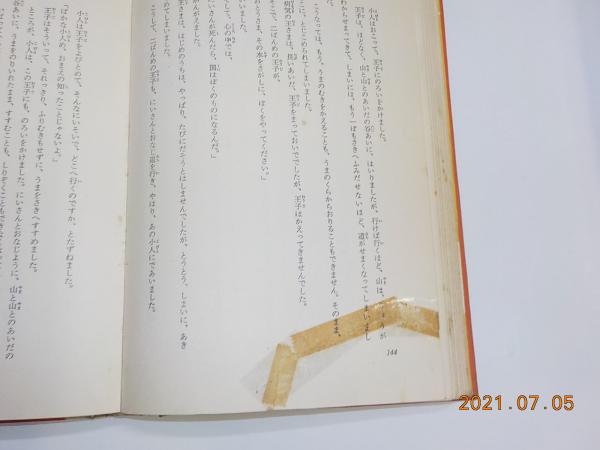 小人はおこって、王子にのろいをかけました。
王子は、ほどなく、山と山とのあいだの谷あいに、はいりましたが、行けば行くほど、山は、
しまいには、もう一ぽもさきへふみだせないほど、道がせまくなってしまいまし
こうなっては、もう、うまのむきをかえることも、うまのくらからおりることもできません。そのまま、
とじこめられてしまいました。
王さまは、長いあいだ、王子をまっておいででしたが、王子はかえってきませんでした。
そこで、二ばんめの王子が、
その水をさがしに、ぼくをやってください。」
心の中では、
さんが死んだら、国はぼくのものになるんだ。」
かんがえました。
王さまは、はじめのうちは、やっぱり、たびにだそうとはしませんでしたが、とうとう、しまいに、あき
めてしまいました。
こうして、二ばんめの王子も、にいさんとおなじ道を行き、やはり、あの小人にであいました。
小人は王子をよびとめて、そんなにいそいで、どこへ行くのですか、とたずねました。
「ばかな小人め。おまえの知ったことじゃないよ。」
王子はそういって、それっきり、ふりむきもせずに、うまをさきへすすめました。
ところが、小人は、この王子にも、のろいをかけました。にいさんとおなじように、山と山とのあいだの
谷あいに、うまをのりいれたまま、すすむことも、しりぞくこともできなく
144
2021.07.05